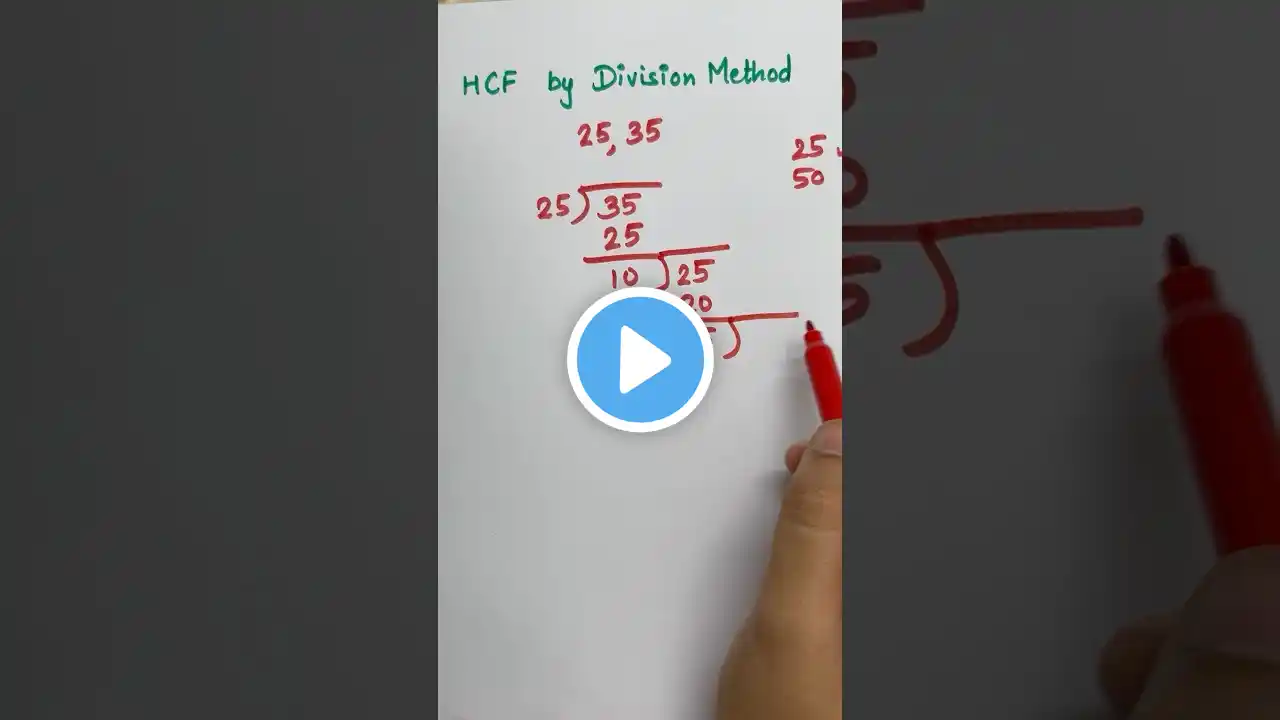 HCF by Division Method
25, 35
25
50
25)35
25
10)25
20
5)